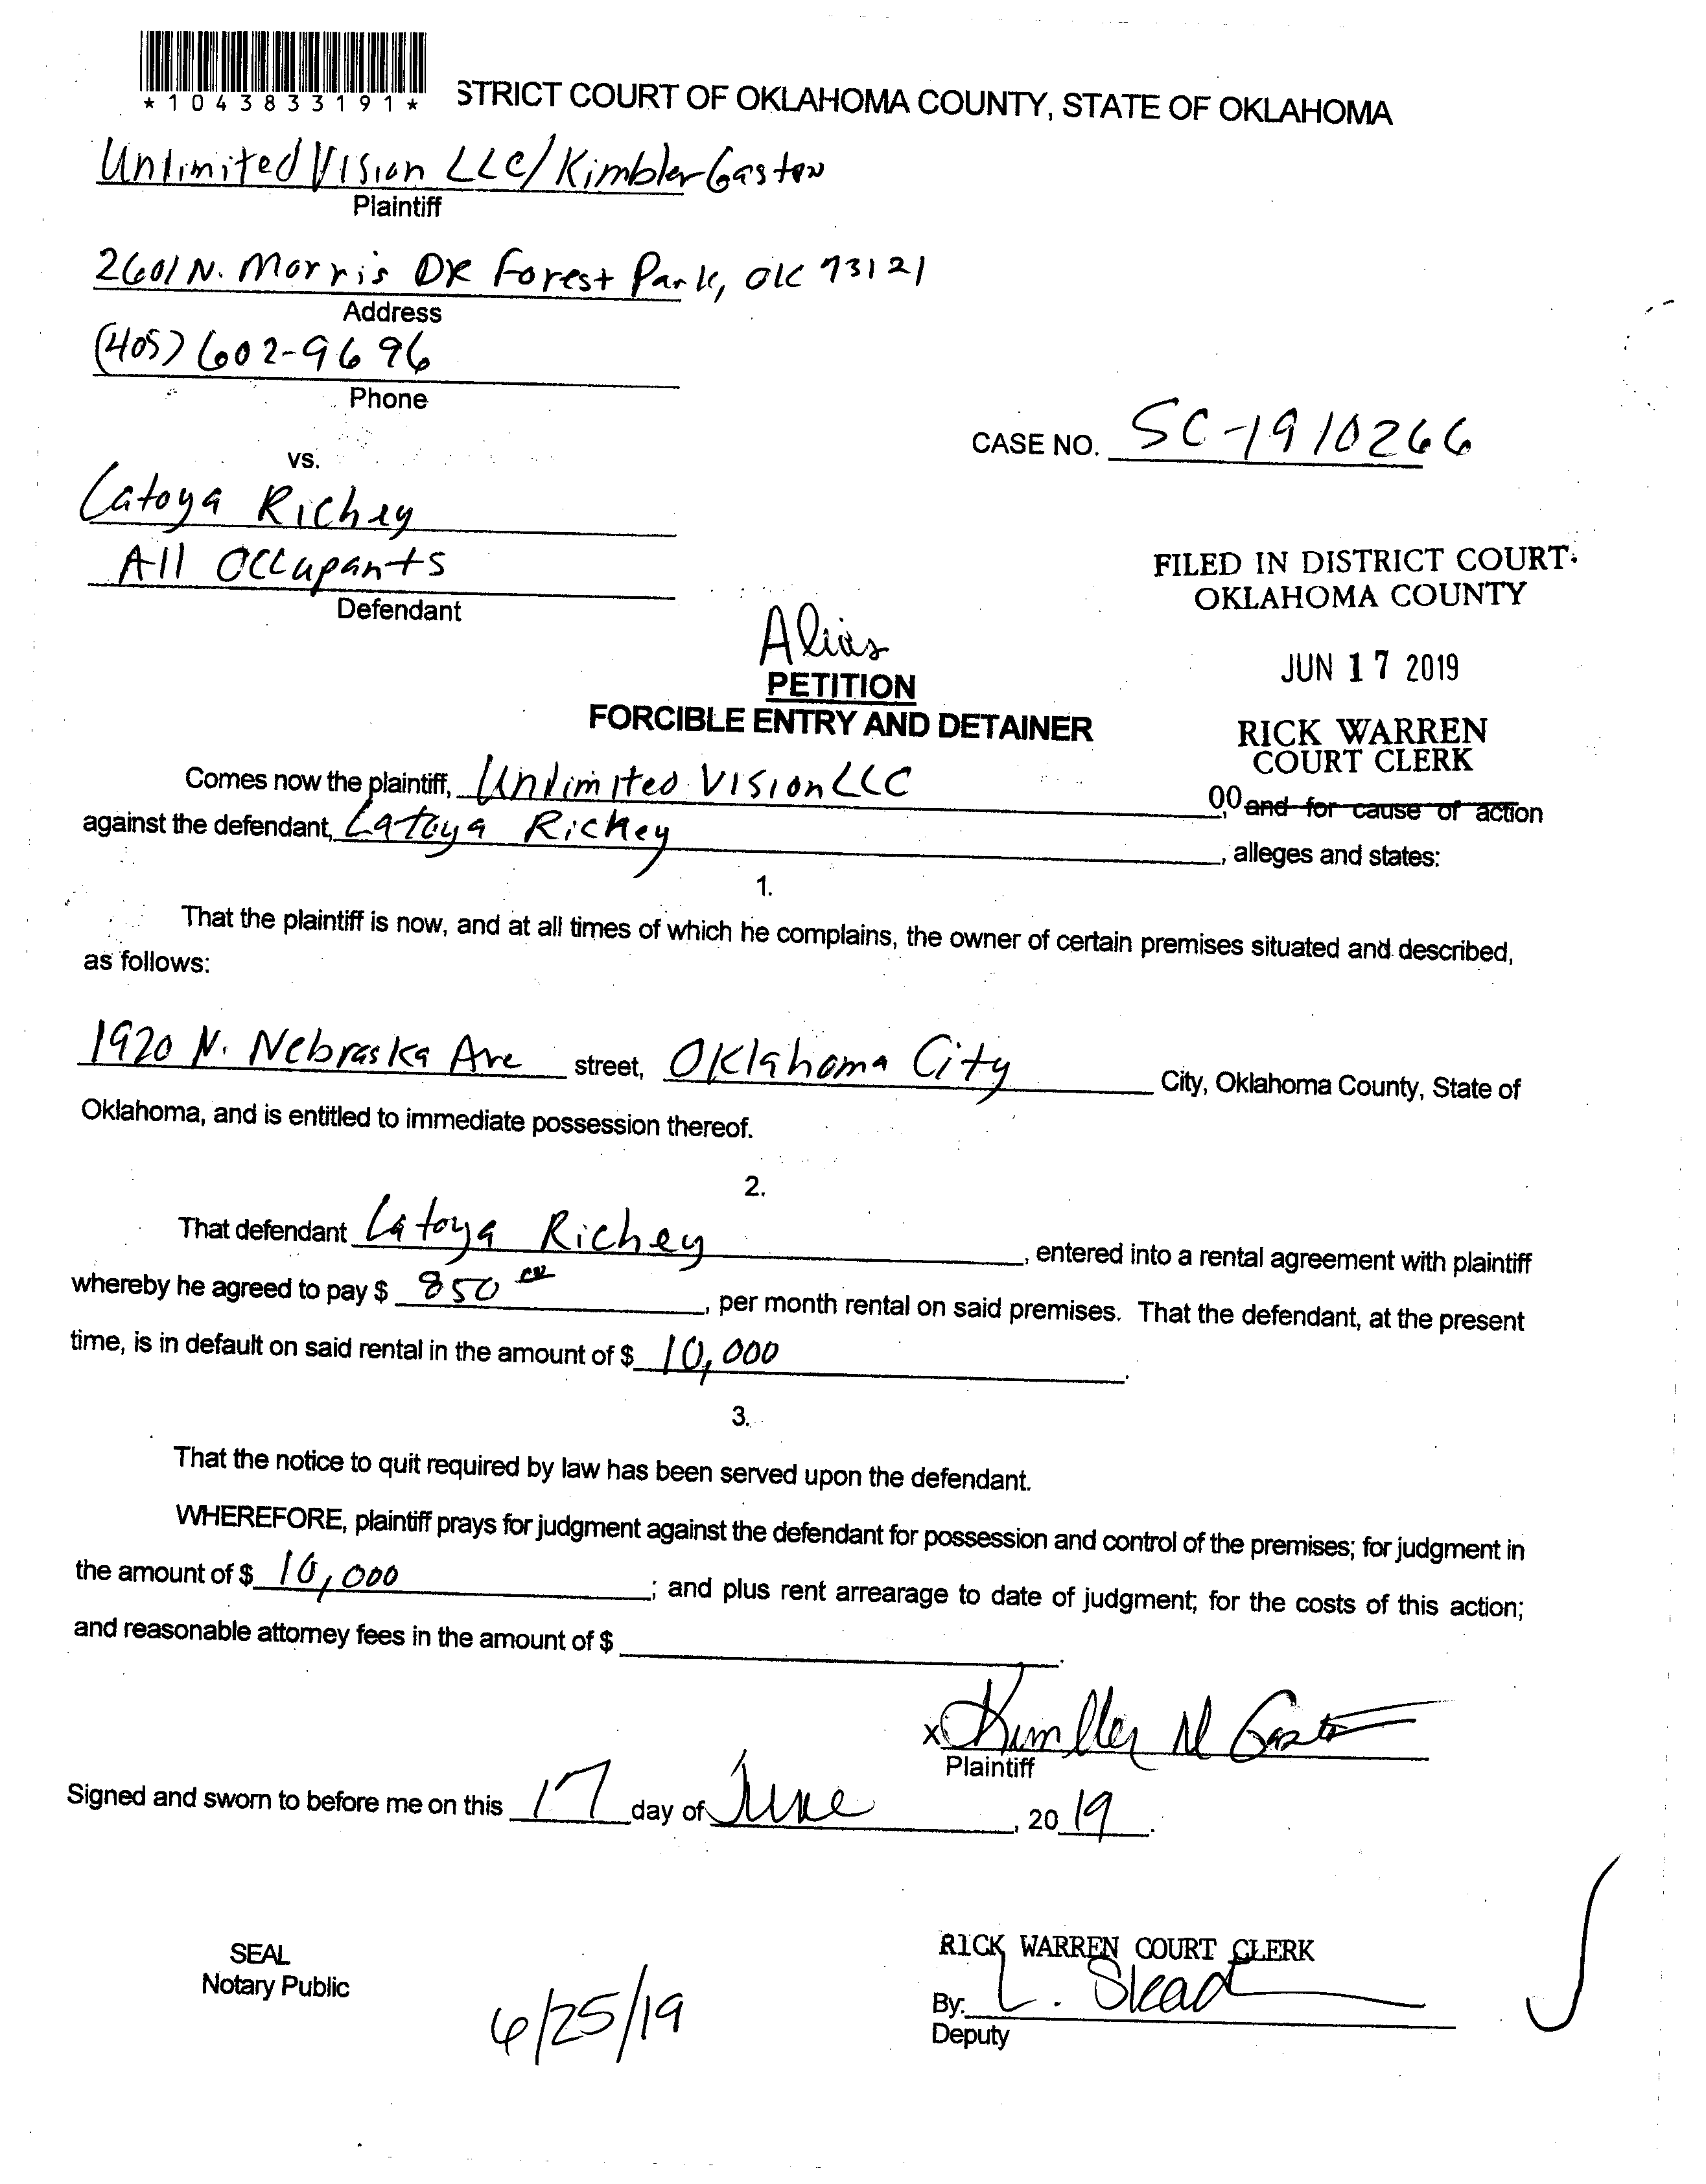 *1043833191*
STRICT COURT OF OKLAHOMA COUNTY, STATE OF OKLAHOMA
Unlimited Vision LLC/Kimbler Gaston
Plaintiff
2601 N. Morris DR Forest Park, OK 73121
Address
(405) 602-9696
Phone
CASE NO. SC-1910266
vs.
Latoya Richey
All Occupants
Defendant
FILED IN DISTRICT COURT
OKLAHOMA COUNTY
JUN 17 2019
RICK WARREN
COURT CLERK
Alias
PETITION
FORCIBLE ENTRY AND DETAINER
Comes now the plaintiff, Unlimited Vision LLC, 00 and for cause of action
against the defendant, Latoya Richey, alleges and states:
1.
That the plaintiff is now, and at all times of which he complains, the owner of certain premises situated and described,
as follows:
1920 N. Nebraska Ave street, Oklahoma City City, Oklahoma County, State of
Oklahoma, and is entitled to immediate possession thereof.
2.
That defendant Latoya Richey, entered into a rental agreement with plaintiff
whereby he agreed to pay $ 850 00, per month rental on said premises. That the defendant, at the present
time, is in default on said rental in the amount of $ 10,000.
3.
That the notice to quit required by law has been served upon the defendant.
WHEREFORE, plaintiff prays for judgment against the defendant for possession and control of the premises; for judgment in
the amount of $ 10,000; and plus rent arrearage to date of judgment; for the costs of this action;
and reasonable attorney fees in the amount of $ .
x Kimbler N Gaston
Plaintiff
Signed and sworn to before me on this 17 day of June, 2019.
SEAL
Notary Public
6/25/19
RICK WARREN COURT CLERK
By: L. Slead
Deputy